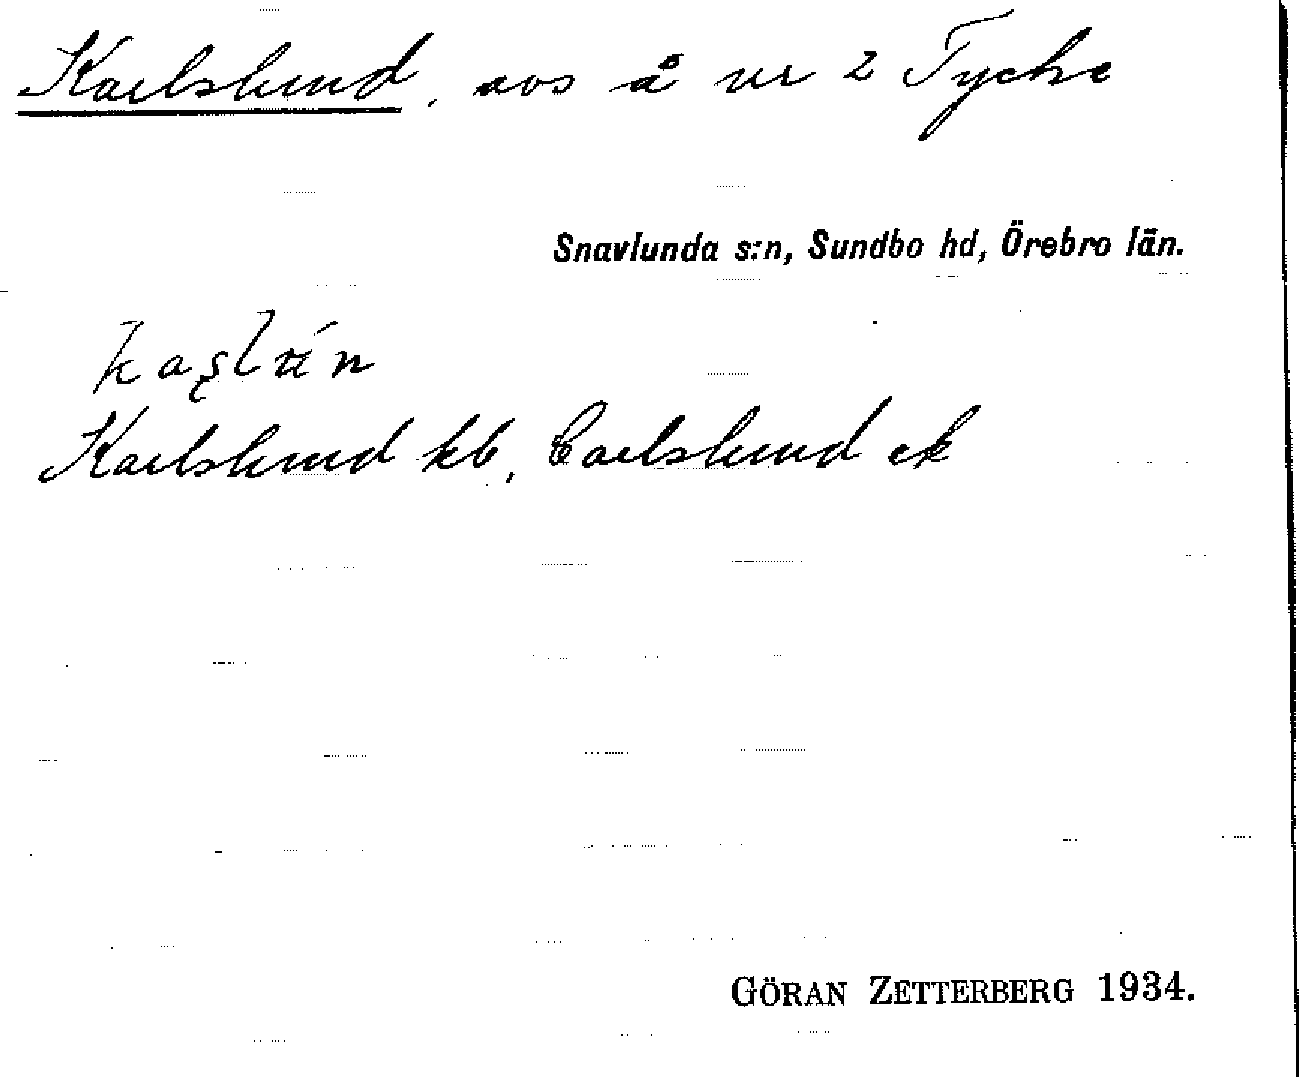 Karlslund, avs å nr 2 Tycke
Snavlunda s:n, Sundbo hd, Örebro län.
Karlslund kb, Carlslund ek
GÖRAN ZETTERBERG 1934.